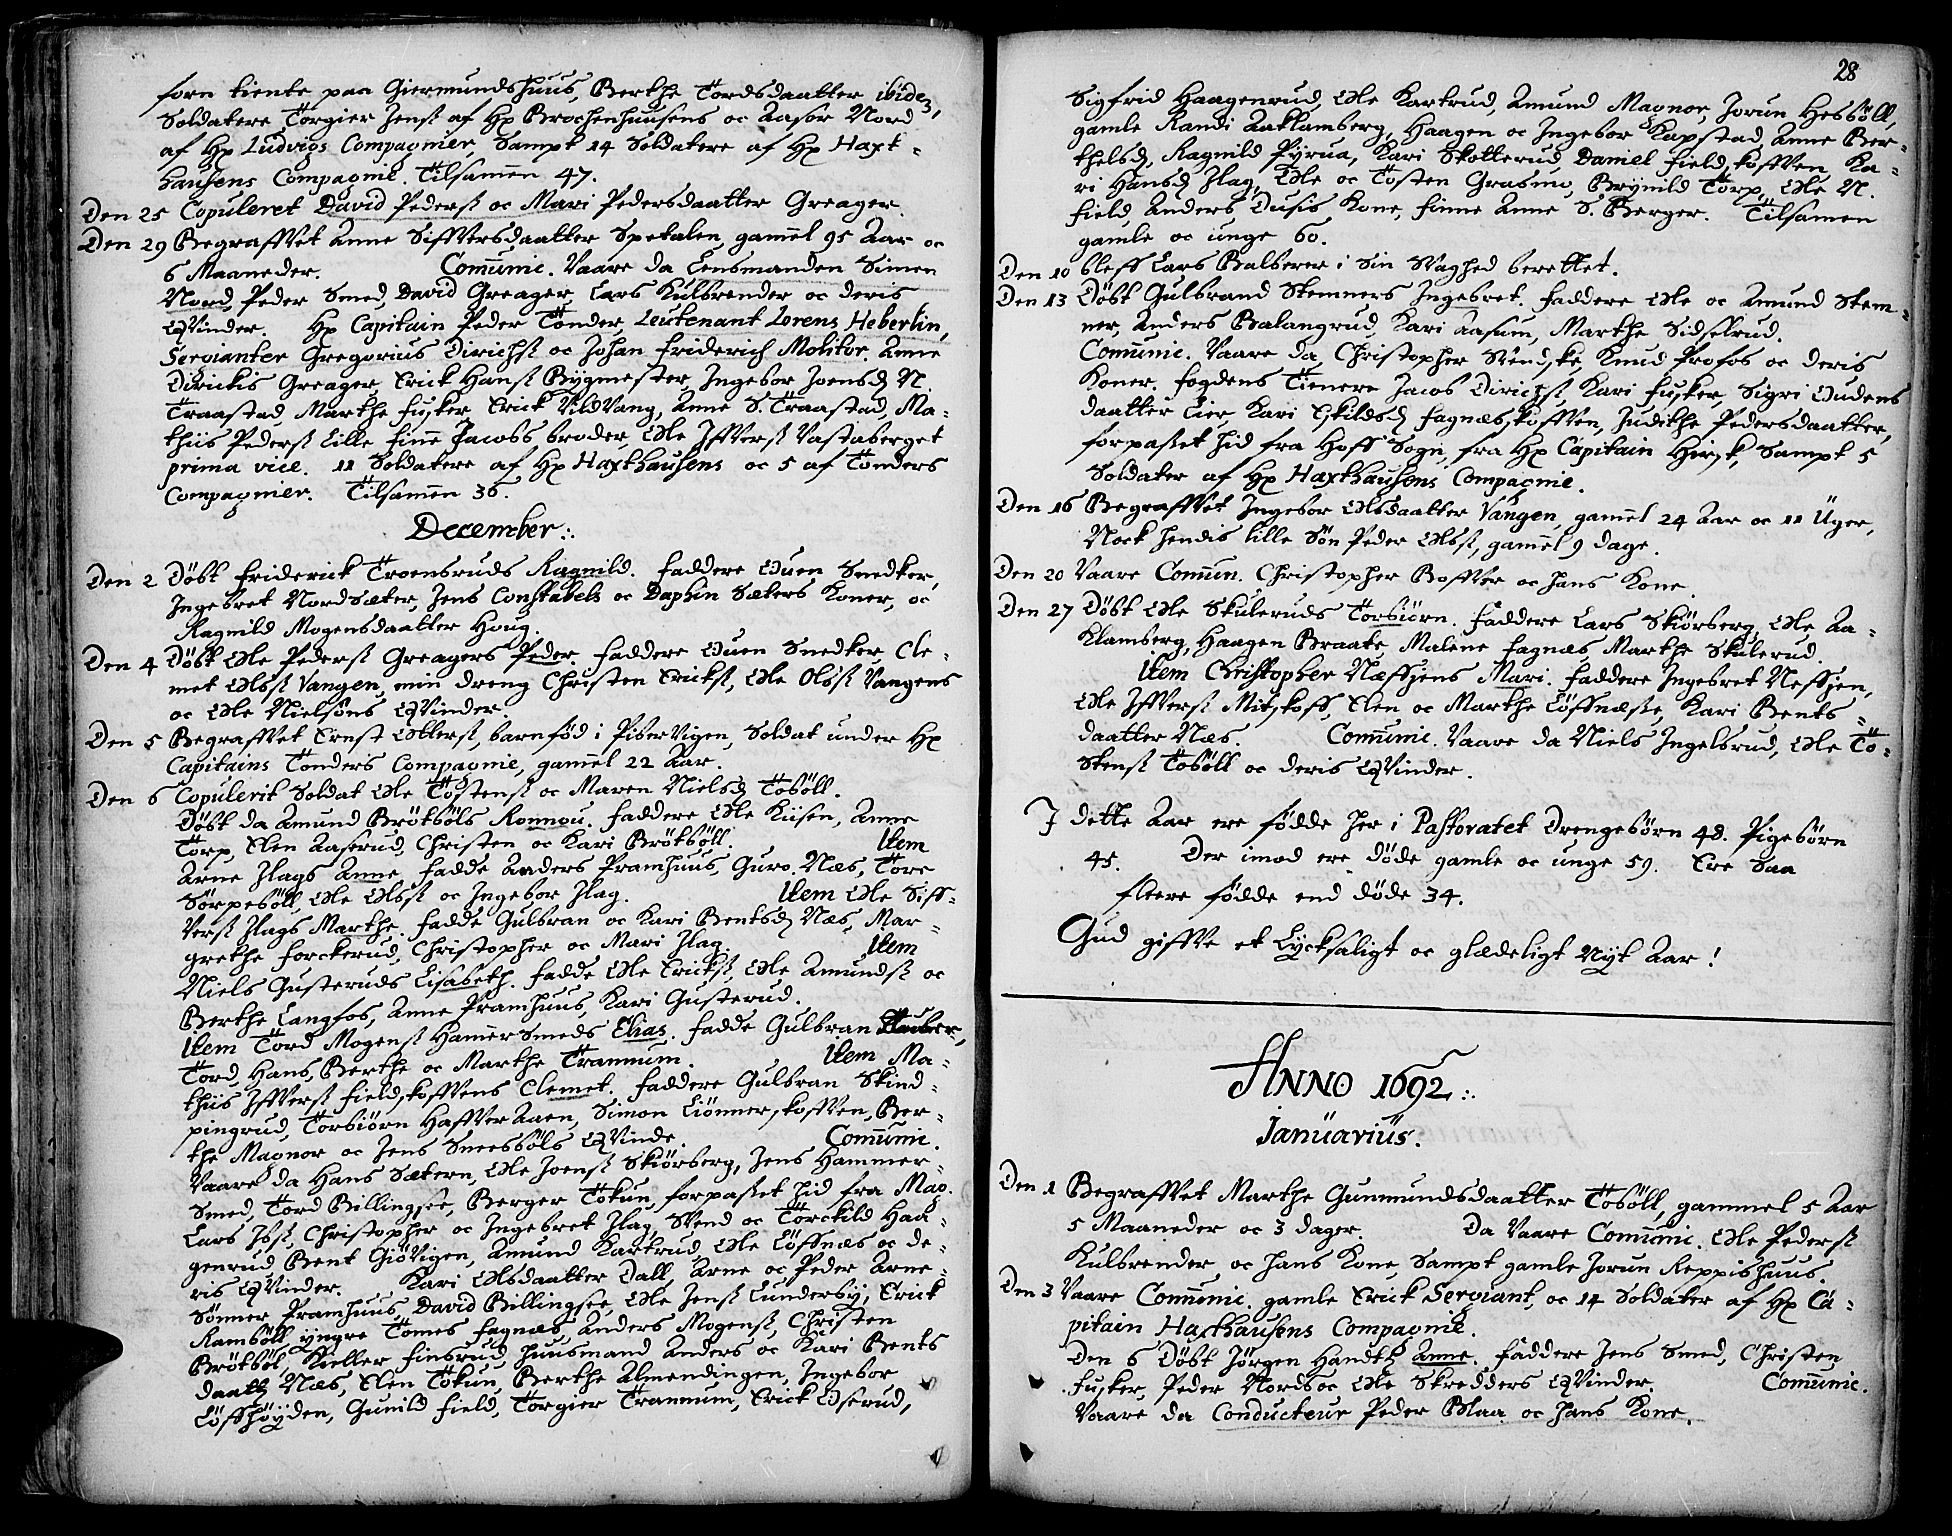 forn tiente paa Giermundshuus, Berthe Tordsdaatter ibidẽ,
Soldatere Torgier Jens: af Hr Brochenhuusens oc Aasor Nord
af Hr Ludvigs Compagnier, Sampt 14 Soldatere af Hr Haxt-
hausens Compagnie. Tilsam̃en 47.
Den 25 Copuleret David Peders: oc Mari Pedersdaatter Greager.
Den 29 Begraffvet Anne Siffversdaatter Spetalen, gam̃el 95 Aar oc
6 Maaneder. Com̃unic. Vaare da Lensmanden Simen
Nord, Peder Smed, David Greager, Lars Kulbrender oc deris
Qvinder. Hr Capitain Peder Tønder, Leutenant Lorens Heberlin,
Servianter Gregorius Dirichs: oc Johan Friderich Molitor, Anne
Dirichis Greager, Erick Hans: Bygmester, Ingebor Joensd: N.
Traastad, Marthe Fusker, Erick Vildvang, Anne S. Traastad, Ma-
thiis Peders: Lille Finne Jacobs broder, Ole Iffvers: Vastaberget
prima vice. 11 Soldatere af Hr Haxthausens oc 5 af Tønders
Compagnier. Tilsam̃en 36.
December:.
Den 2 Døbt Friderick Troensruds Ragnild. Faddere Ouen Snedker,
Ingebret Nordsæter, Jens Constabels oc Daphin Sæters Koner, oc
Ragnild Mogensdaatter Houg.
Den 4 Døbt Ole Peders: Greagers Peder. Faddere Ouen Snedker, Cle-
met Ols: Vangen, min dreng Christen Ericks:, Ole Ols: Vangens
oc Ole Nielsøns Qvinder.
Den 5 Begraffvet Ernst Otters:, barnfød i Pibervigen, Soldat under Hr
Capitains Tønders Compagnie, gam̃el 22 Aar.
Den 6 Copulerit Soldat Ole Tostens: oc Maren Nielsd: Tobøll.
Døbt da Amund Brøtbøls Ronnou. Faddere Ole Kiisen, Anne
Torp, Elen Aaserud, Christen oc Kari Brøtbøll. Item
Arne Ilags Anne, Fadde Anders Pramhuus, Guro Næs, Tore
Sørpebøll, Ole Ols: oc Ingebor Ilag. Item Ole Siff-
vers: Ilags Marthe. Fadde Gulbran oc Kari Bentsd: Næs, Mar-
grethe Forckerud, Christopher oc Mari Ilag. Item
Niels Gusteruds Lisabeth. Fadde Ole Ericks:, Ole Amunds: oc
Berthe Langfos, Anne Pramhuus, Kari Gusterud.
Item Tord Mogens: Ham̃ersmeds Elias. Fadde Gulbran
Tord, Hans, Berthe oc Marthe Trannum. Item Ma-
thiis Iffvers: Fieldskoffvens Clemet. Faddere Gulbran Skind-
pingrud, Torbiørn Haffveraaen, Simon Liønnerskoffven, Ber-
the Magnor oc Jens Sneesbøls Qvinde. Com̃unic.
Vaare da Hans Sætern, Ole Joens: Skiørberg, Jens Hammer-
Smed, Tord Billingsøe, Berger Tøkun, forpasset hid fra Mag.
Lars Ibs:, Christopher oc Ingebret Ilag, Svend oc Torckild Haa-
genrud, Bent Giøvigen, Amund Kartrud, Ole Løffnæs oc de-
ris Qvinder. Kari Olsdaatter Dall, Arne oc Peder Arne-
Sønner Pramhuus, David Billingsøe, Ole Jens: Lundersby, Erick
Rambøll, yngre Tomes Fagnæs, Anders Mogens:, Christen
Brøtbøl, Kieller Finsrud, Huusmand Anders oc Kari Bents
daatt: Næs, Elen Tøkun, Berthe Almendingen, Ingebor
Løffhøyden, Gunild Field, Torgier Trannum, Erick Oserud,
28
Sigfrid Haagenrud, Ole Kartrud, Amund Magnor, Jorun Hesbøll,
gamle Randi Aaklamberg, Haagen oc Ingebor Kapstad, Anne Ber-
thelsd:, Ragnild Pyrua, Kari Skotterud, Daniel Fieldskoffven, Ka-
ri Hansd: Ilag, Ole oc Tosten Grasmo, Brynild Torp, Ole N.
Field, Anders Dusis Kone, Finne Anne S. Berger. Tilsamen
gamle oc unge 60.
Den 10 bleff Lars Balberer i Sin Svaghed berettet.
Den 13 Døbt Gulbrand Stemners Ingebret. Faddere Ole oc Amund Stem-
ner, Anders Balangrud, Kari Aasum, Marthe Sidselrud.
Com̃unic. Vaare da Christopher Svendske, Knud Profos oc deris
Koner. Fogdens Tienere Jacob Dirichs:, Kari Fusker, Sigri Oudens
daatter Lier, Kari Eskildsd: Fagnæsskoffven, Judithe Pedersdaatter,
forpasset hid fra Hoff Sogn, fra Hr Capitain Hirsk, Sampt 5
Soldater af Hr Haxthausens Compagnie.
Den 16 Begraffvet Ingebor Olsdaatter Vangen, gam̃el 24 Aar oc 11 Uger,
Nock hendis lille Søn Peder Ols:, gam̃el 9 dage.
Den 20 Vaare Com̃un. Christopher Boffver oc hans Kone.
Den 27 Døbt Ole Skuleruds Torbiørn. Faddere Lars Skiørberg, Ole Aa-
klamberg, Haagen Braate, Malene Fagnæs, Marthe Skulerud.
Item Christopher Næssjens Mari. Faddere Ingebret Nessjen,
Ole Iffvers: Mitskoff, Elen oc Marthe Løffnæsse, Kari Bents-
daatter Næs. Com̃unic. Vaare da Niels Ingelsrud, Ole To-
stens: Tobøll oc deris Qvinder.
I dette Aar ere fødde her i Pastoratet Drengebørn 48. Pigebørn
45. Der imod ere døde gamle oc unge 59. Ere saa
fleere fødde end døde 34.
Gud giffve et Lycksaligt oc glædeligt Nyt Aar!
ANNO 1692:.
Januarius.
Den 1 Begraffvet Marthe Gunmundsdaatter Tobøll, gammel 5 Aar
5 Maaneder oc 3 dager. Da Vaare Com̃unic. Ole Peders:
Kulbrender oc hans Kone, Sampt gamle Jorun Reppishuus.
Den 3 Vaare Com̃unic. gamle Erick Serviant, oc 14 Soldater af Hr Ca-
pitain Haxthausens Compagnie.
Den 6 Døbt Jørgen Handtz Anne. Faddere Jens Smed, Christen
Fusker, Peder Nords oc Ole Skredders Qvinder. Com̃unic.
Vaare da Conducteur Peder Blaa oc hans Kone.